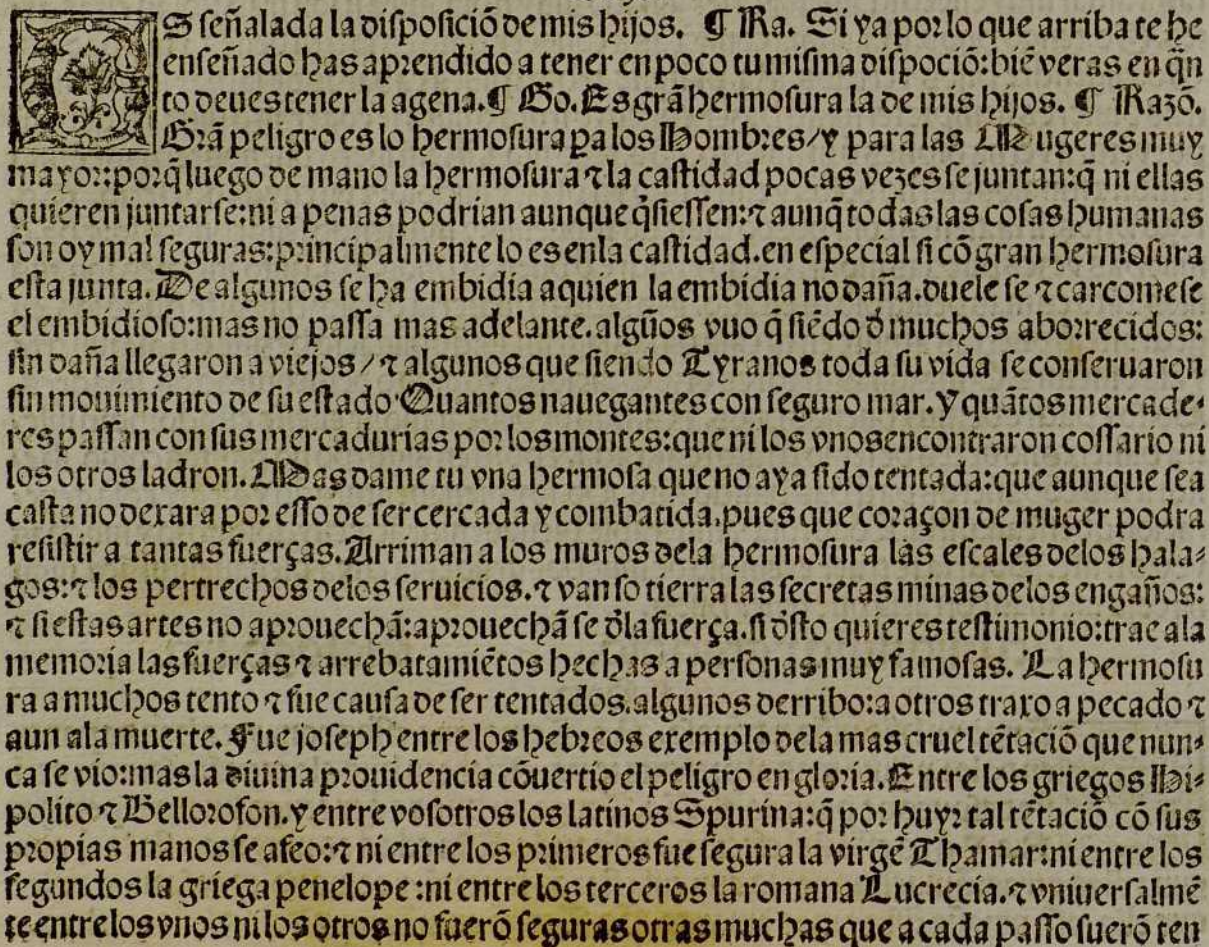 ES señalada la disposiciõ de mis hijos. ¶ Ra. Si ya por lo que arriba te he
enseñado has aprendido a tener en poco tu misma dispociõ: biẽ veras en q̃n
to deues tener la agena. ¶ Go. Es grã hermosura la de mis hijos. ¶ Razõ.
Grã peligro es lo hermosura pa los Hombres/ y para las Mugeres muy
mayor: porq̃ luego de mano la hermosura ⁊ la castidad pocas vezes se juntan: q̃ ni ellas
quieren juntarse: ni a penas podrian aunque q̃siessen: ⁊ aunq̃ todas las cosas humanas
son oy mal seguras: principalmente lo es enla castidad. en especial si cõ gran hermosura
esta junta. De algunos se ha embidia aquien la embidia no daña. duele se ⁊ carcomese
el embidioso: mas no passa mas adelante. algũos vuo q̃ siẽdo d̃ muchos aborrecidos:
sin daña llegaron a viejos/ ⁊ algunos que siendo Tyranos toda su vida se conseruaron
sin mouimiento de su estado Quantos nauegantes con seguro mar. y quãtos mercade-
res passan con sus mercadurias por los montes: que ni los vnos encontraron cossario ni
los otros ladron. Mas dame tu vna hermosa que no aya sido tentada: que aunque sea
casta no dexara por esso de ser cercada y combatida. pues que coraçon de muger podra
resistir a tantas fuerças. Arriman a los muros dela hermosura las escales delos hala-
gos: ⁊ los pertrechos delos seruicios. ⁊ van so tierra las secretas minas delos engaños:
⁊ si estas artes no aprouechã: aprouechã se d̃la fuerça. si d̃sto quieres testimonio: trae ala
memoria las fuerças ⁊ arrebatamiẽtos hechas a personas muy famosas. La hermosu
ra a muchos tento ⁊ fue causa de ser tentados. algunos derribo: a otros traxo a pecado ⁊
aun ala muerte. Fue joseph entre los hebreos exemplo dela mas cruel tẽtaciõ que nun-
ca se vio: mas la diuina prouidencia cõuertio el peligro en gloria. Entre los griegos Hi-
polito ⁊ Bellorofon. y entre vosotros los latinos Spurina: q̃ por huyr tal tẽtaciõ cõ sus
propias manos se afeo: ⁊ ni entre los primeros fue segura la virgẽ Thamar: ni entre los
segundos la griega penelope: ni entre los terceros la romana Lucrecia. ⁊ vniuersalmẽ
te entre los vnos ni los otros no fuerõ seguras otras muchas que a cada passo fuerõ ten